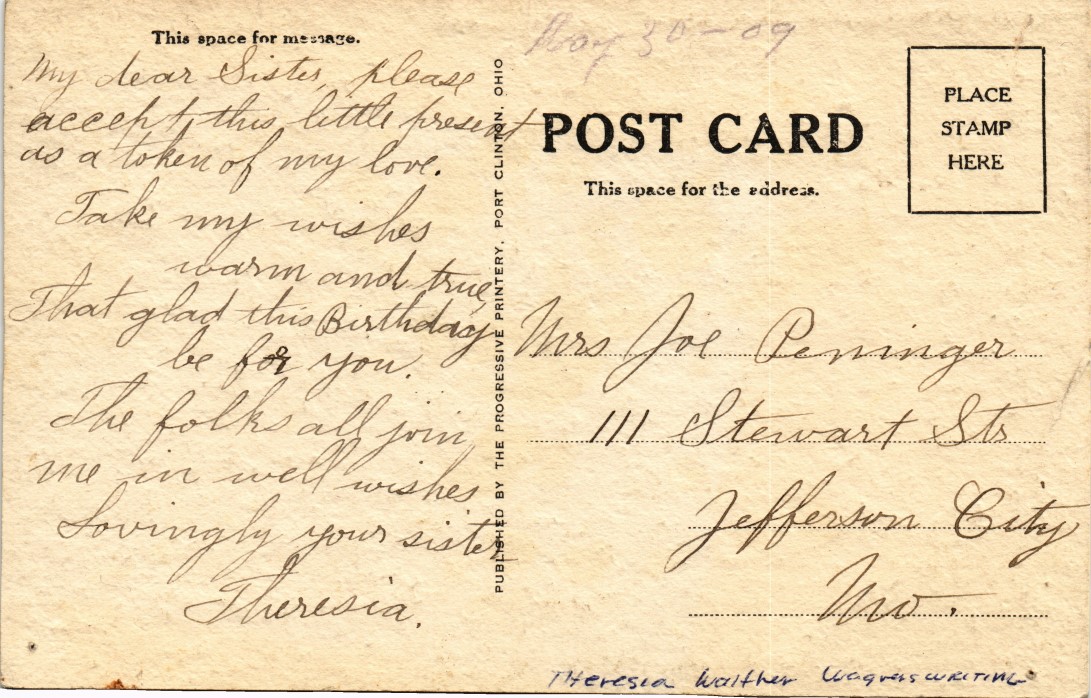 This space for message.
My dear Sister, please
accept this little present
as a token of my love.
Take my wishes
warm and true,
That glad this Birthday
be for you.
The folks all join
me in well wishes
Lovingly your sister
Theresia.
PUBLISHED BY THE PROGRESSIVE PRINTERY, PORT CLINTON, OHIO
May 30-09
POST CARD
This space for the address.
PLACE
STAMP
HERE
Mrs Joe Peninger
111 Stewart Str
Jefferson City
Mo.
Theresia Walther Wagners writing